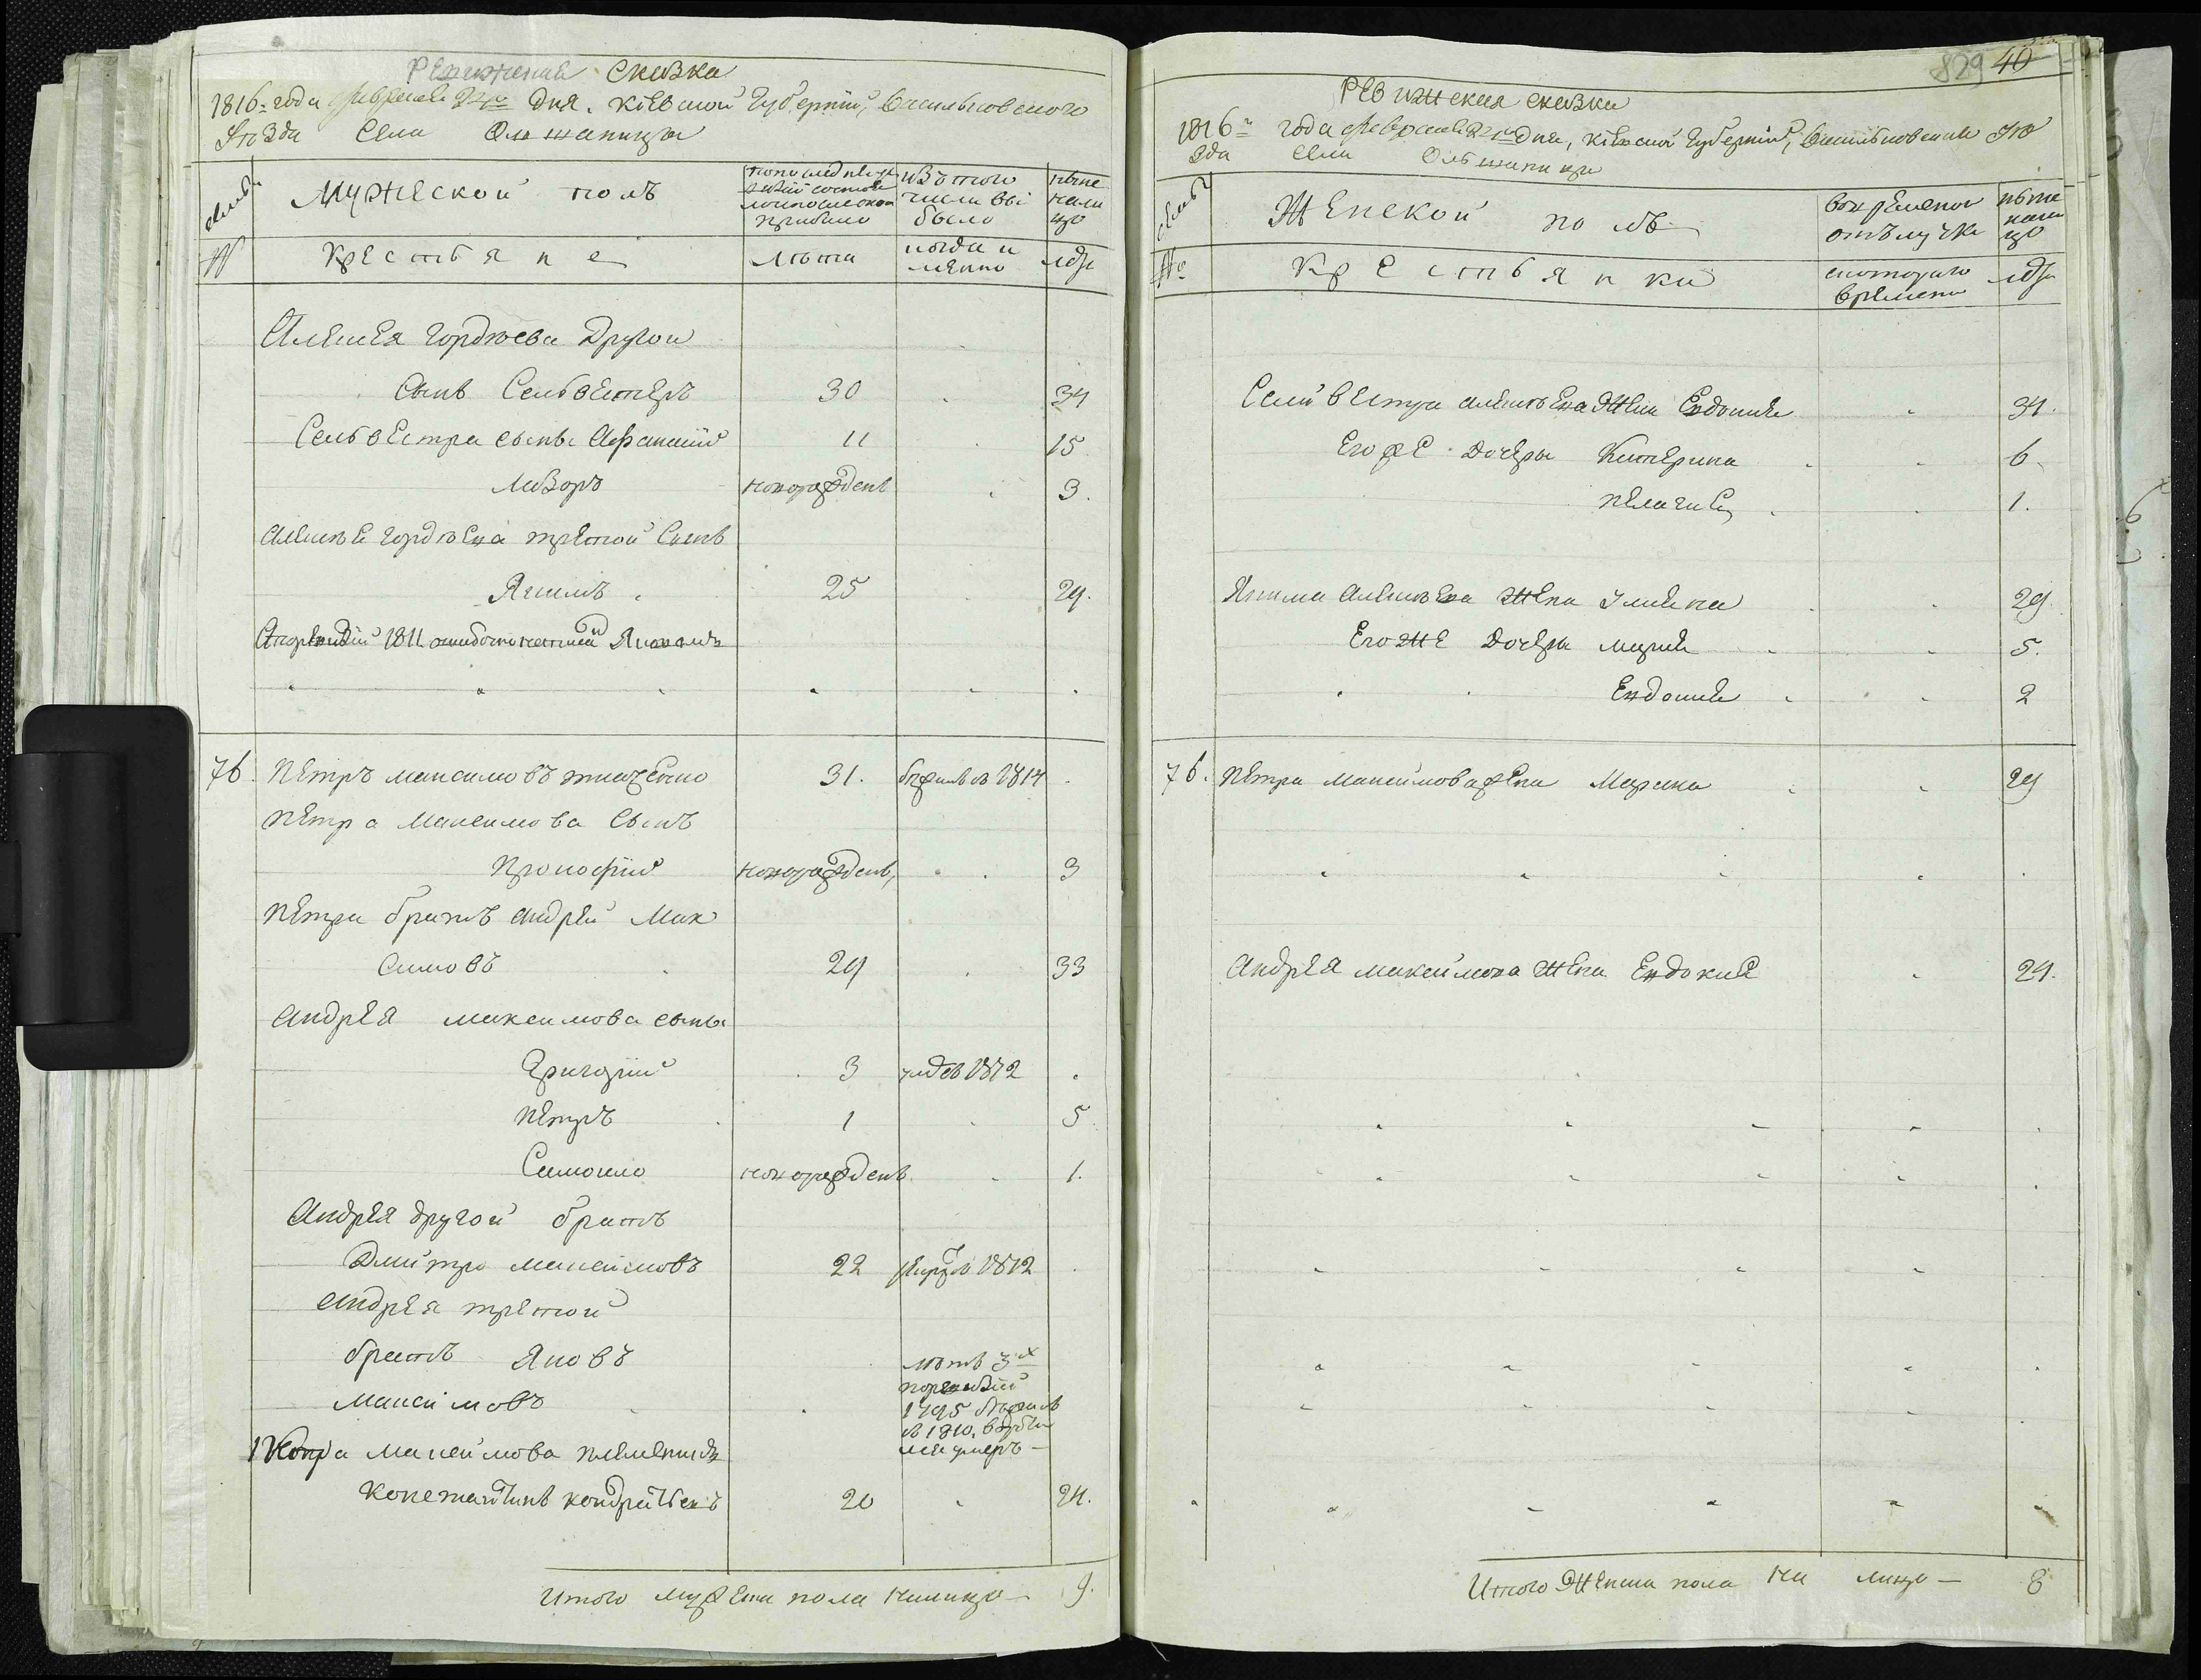 Ревижская сказка
1816: года февраля дня. Кіевской Губерніи, Васильковского
Уѣзда Села Ольшаницы
семьи
Мужеской полъ
по последней ревизіи состояло и после оной прибыло
изъ того числа выбыло
ныне налицо
№
Крестьяне
лѣта
когда именно
лѣта
Алексея Гордѣева Другой
Сынъ Сельвестеръ 30 34
Сельвестра сынъ Афанасий 11 15
Лазоръ новорожденъ 3.
Алексея Гордѣева третой Сынъ
Якимъ 25 29.
ревизіи 1811 Яковомъ
76. Петръ Максимовъ 31. 1814
Петра Максимова Сынъ
Прокофий новорожденъ, 3
Петра братъ Андрей Мак
симовъ 29 33
Андрея Максимова сынъ
Григорий 3 1812
Петръ 1 5
Самойло новорожденъ 1.
Андрея другой братъ
Дмитро Максимовъ 22 1812
Андрея третой
братъ Яковъ
Максимовъ
по ревизіи
1795
въ 1810.
умеръ
Петра Максимова племянникъ
Константинъ Кондратьевъ 20 24.
Итого мужеска пола налицо 9.
829 40
Ревижская сказка
1816 года февраля дня, Кіевской Губерніи, Васильковского Уѣ
зда Села Ольшаницы
семьи
Женской полъ
во временной отълучке
ныне налицо
№
Крестьянки
с которого времени
лѣта
Сельвестра Алексѣева Жена Евдокия 34.
Его же дочеры Катерина 6
Пелагия 1.
Якима Алексѣева жена Улияна 29.
Его же дочеры Мария 5.
Евдокия 2
76. Петра Максимова жена Марина 29
Андрея Максимова жена Евдокия 29.
Итого женска пола на лицо 8